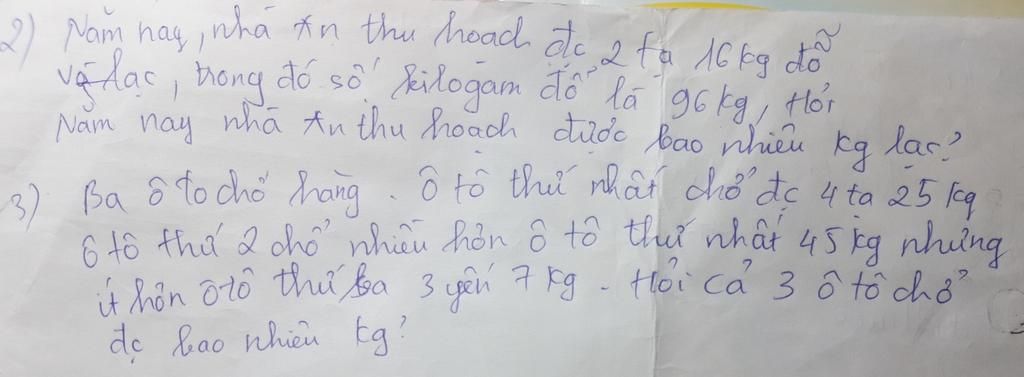 2) Năm nay, nhà An thu hoạch đc 2 tạ 16kg đỗ
và lạc, trong đó số kilôgam đỗ là 96kg, Hỏi
Năm nay nhà An thu hoạch được bao nhiêu kg lạc?
3) Ba ô to chở hàng. Ô tô thứ nhất chở đc 4 tạ 25 kg
Ô tô thứ 2 chở nhiều hơn ô tô thứ nhất 45 kg nhưng
ít hơn ôtô thứ ba 3 yến 7 kg. Hỏi cả 3 ô tô chở
đc bao nhiêu kg?